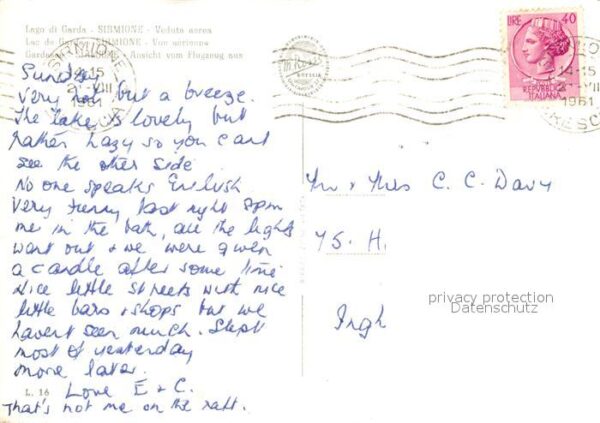 Lago di Garda - SIRMIONE - Veduta aerea
Lac de Garda - SIRMIONE - Vue aérienne
Gardasee - SIRMIONE - Ansicht vom Flugzeug aus
SIRMIONE
14-15
VIII
1961
BRESCIA
LIRE 40
REPUBBLICA
ITALIANA
14-15
VIII
1961
BRESCIA
Sunday
Very hot but a breeze.
The lake is lovely but
rather hazy so you cant
see the other side.
No one speaks English
Very funny last night 8pm
me in the bath, all the lights
went out & we were given
a candle after some time
Nice little streets with nice
little bars & shops but we
havent seen much. Slept
most of yesterday
more later.
Love E & C.
L. 16
That's not me on the raft.
Mr & Mrs C. C. Davy
75. H.
Ingh
privacy protection
Datenschutz